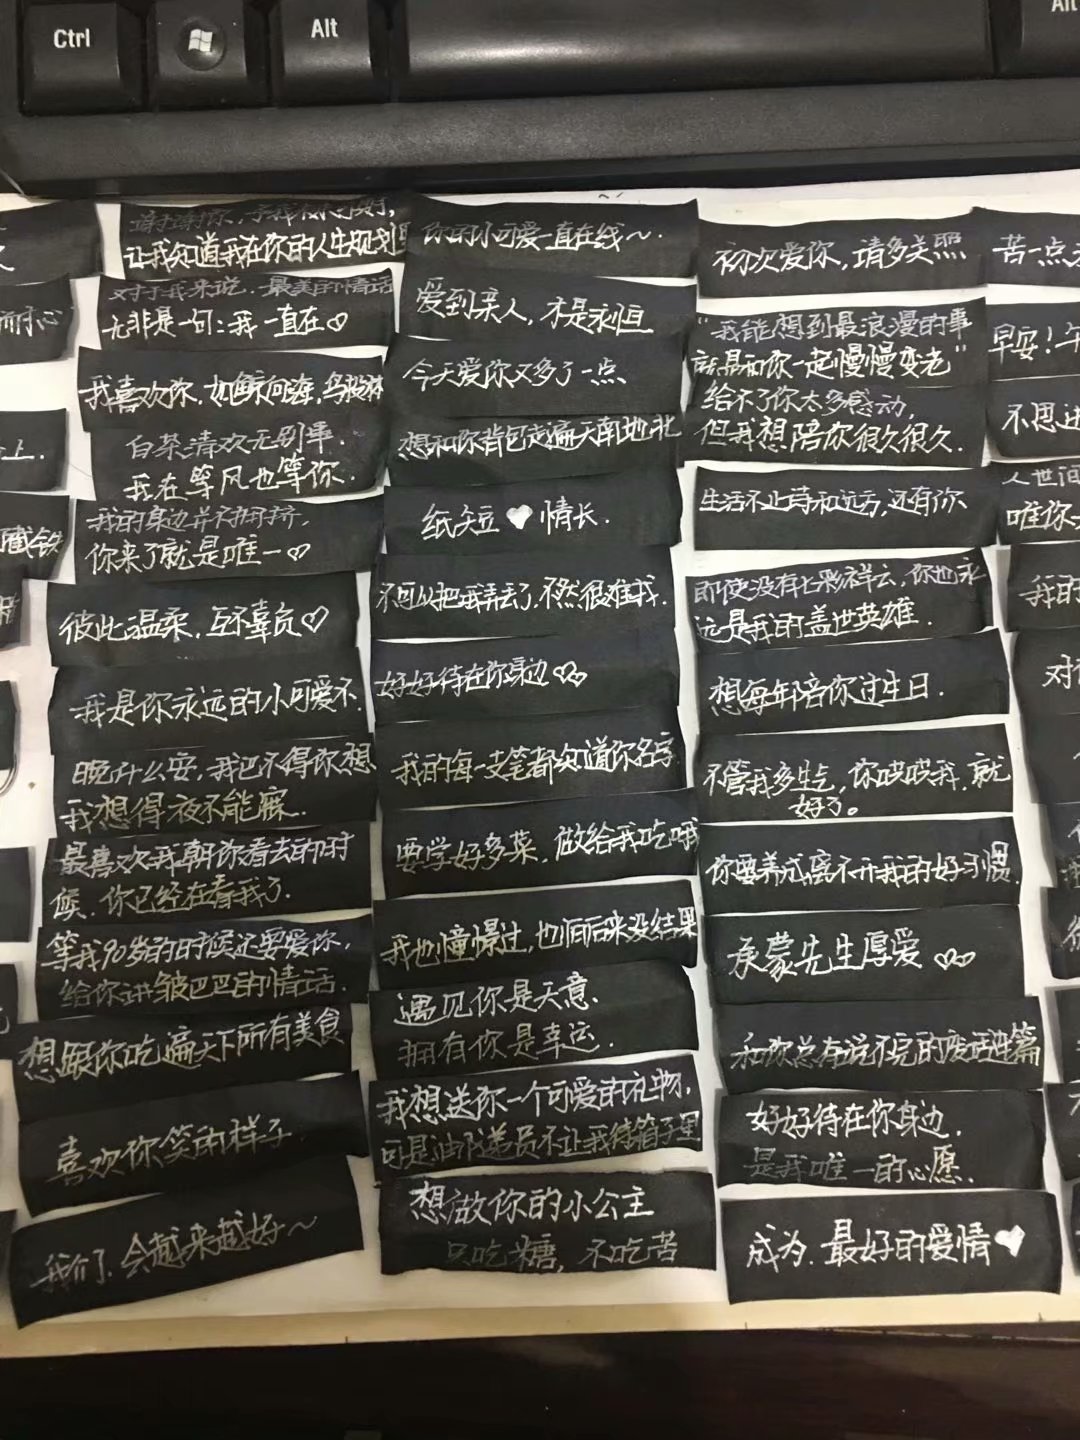 Ctrl
Alt
Alt
让我知道我在你的人生规划里
对于我来说，最美的情话
无非是一句：我一直在♡
我喜欢你，如鲸向海，鸟投林
白茶清欢无别事，
我在等风也等你.
我的身边并不拥挤，
你来了就是唯一♡
彼此温柔，互不辜负♡
我是你永远的小可爱不
晚什么安，我巴不得你想
我想得夜不能寐.
最喜欢我朝你看去的时
候，你已经在看我了.
等我90岁的时候还要爱你，
给你讲皱巴巴的情话.
想跟你吃遍天下所有美食
喜欢你笑的样子.
我们，会越来越好～
你的小可爱一直在线～.
爱到亲人，才是永恒
今天爱你又多了一点
想和你背包走遍天南地北
纸短♥情长.
不可以把我弄丢了，不然很难找.
好好待在你身边♡♡
我的每一支笔都知道你名字
要学好多菜，做给我吃哦
我也憧憬过，也后来没结果
遇见你是天意，
拥有你是幸运.
我想送你一个可爱的礼物，
可是邮递员不让我待箱子里
想做你的小公主
只吃糖，不吃苦
初次爱你，请多关照
“我能想到最浪漫的事
就是和你一起慢慢变老”
给不了你太多感动，
但我想陪你很久很久.
生活不止诗和远方，还有你
即使没有七彩祥云，你也永
远是我的盖世英雄.
想每年陪你过生日.
不管我多生气，你哄哄我，就
好了。
你要养成离不开我的好习惯.
承蒙先生厚爱♡♡
和你总有说不完的废话连篇
好好待在你身边.
是我唯一的心愿.
成为.最好的爱情♥
苦一点
早安！午
不思进
人世间
唯你
我的
对